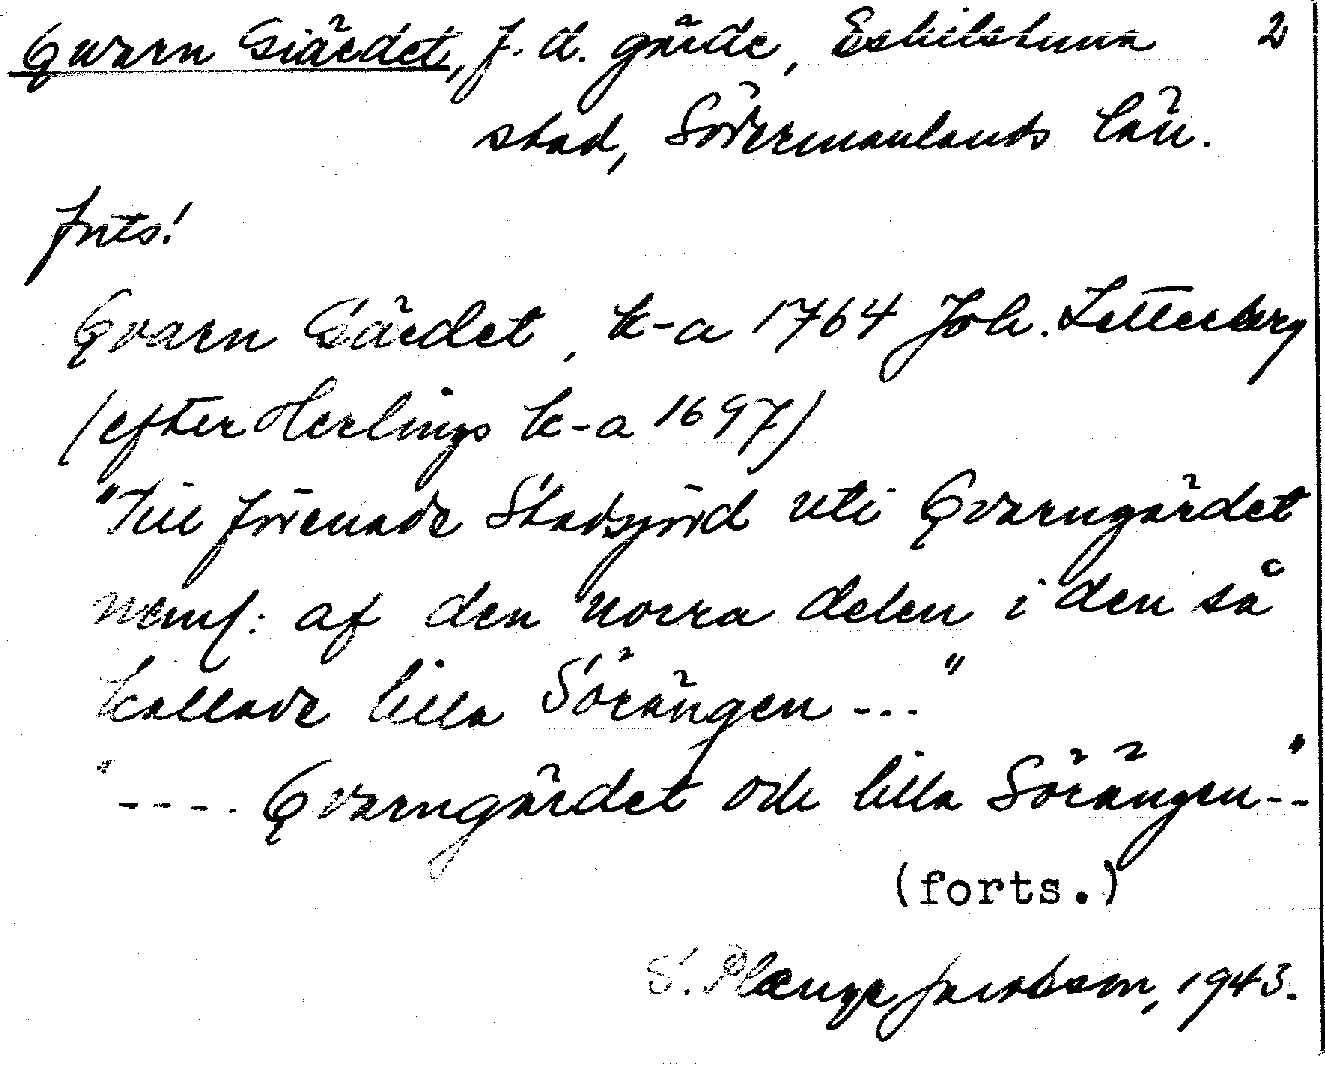 Qvarn Giärdet, f.d. gärde, Eskilstuna 2
stad, Södermanlands län.
forts!
Qvarn Gärdet, k-a 1764 Joh. Zetterberg
(efter Herlings k-a 1697)
"Till förenade Stadsjord uti Qvarngärdet
neml: af den norra delen i den så
kallade lilla Sörängen ---"
"---- Qvarngärdet och lilla Sörängen--"
(forts.)
S. Plænge Jacobson, 1943.